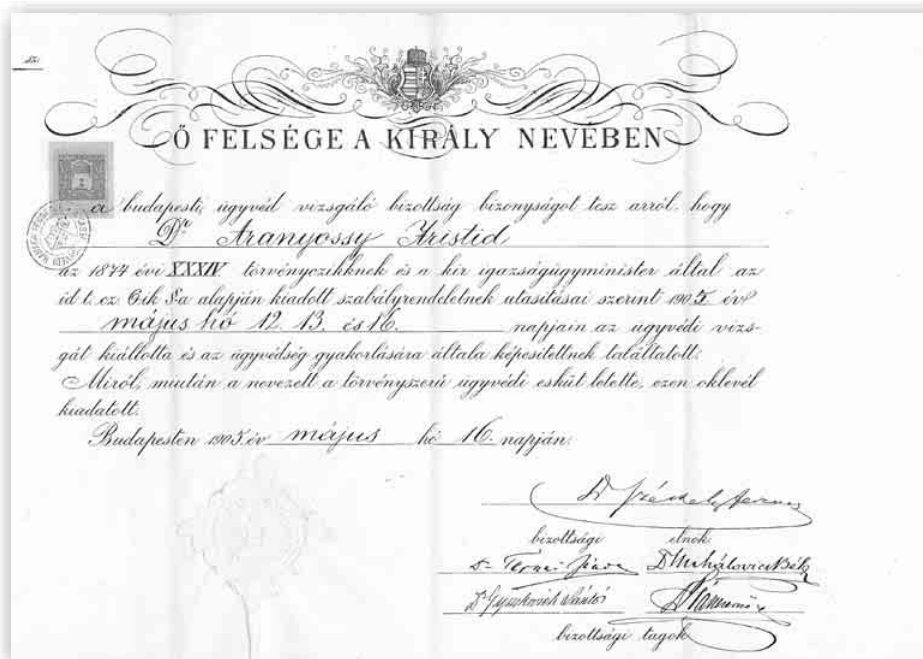 Ő FELSÉGE A KIRÁLY NEVÉBEN
a budapesti ügyvéd vizsgáló bizottság bizonyságot tesz arról, hogy
Dr Aranyossy Arisztid
az 1874 évi XXXIV törvényczikknek és a kir igazságügyminister által az
id. t. cz 6ik §-a alapján kiadott szabályrendeletnek utasításai szerint 1905 év
május hó 12. 13. és 16. napjain az ügyvédi vizs-
gát kiállotta és az ügyvédség gyakorlására általa képesítettnek találtatott.
Miről, miután a nevezett a törvényszerű ügyvédi esküt letette, ezen oklevél
kiadatott.
Budapesten 1905 év május hó 16. napján.
Dr Székely Ferenc
bizottsági elnök
Dr
Dr
bizottsági tagok